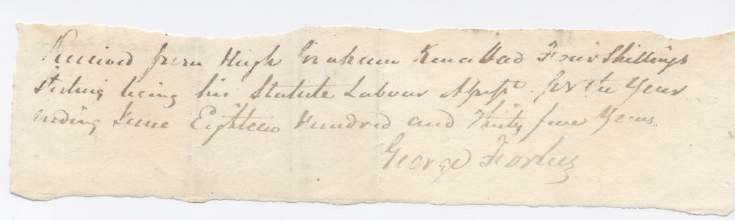 Received from Hugh Graham Four Shillings
sterling being his Statute Labour for the Year
ending June Eighteen Hundred and Thirty five Years
George Forbes